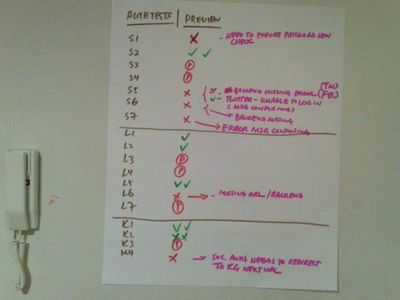 AUTH TESTS | PREVIEW
S1 X - NEED TO ENSURE PASSWORD LEN
CHECK
S2 ✓ ✓
S3 P
S4 P
S5 X - BACKEND MISSING ERROR (TW)
(FB)
S6 X TWITTER - UNABLE TO LOGIN
(MSG CONFUSING)
→ BACKEND MISSING
S7 X → ERROR MSG CONFUSING
L1 ✓
L2 ✓
L3 P
L4 P
L5 ✓ ✓
L6 X → - MISSING URL / BACKEND
L7 P
K1 ✓ ✓
K2 ✓ X
K3 P
K4 X → SOC AUTH NEEDS TO REDIRECT
TO KG NEXT URL